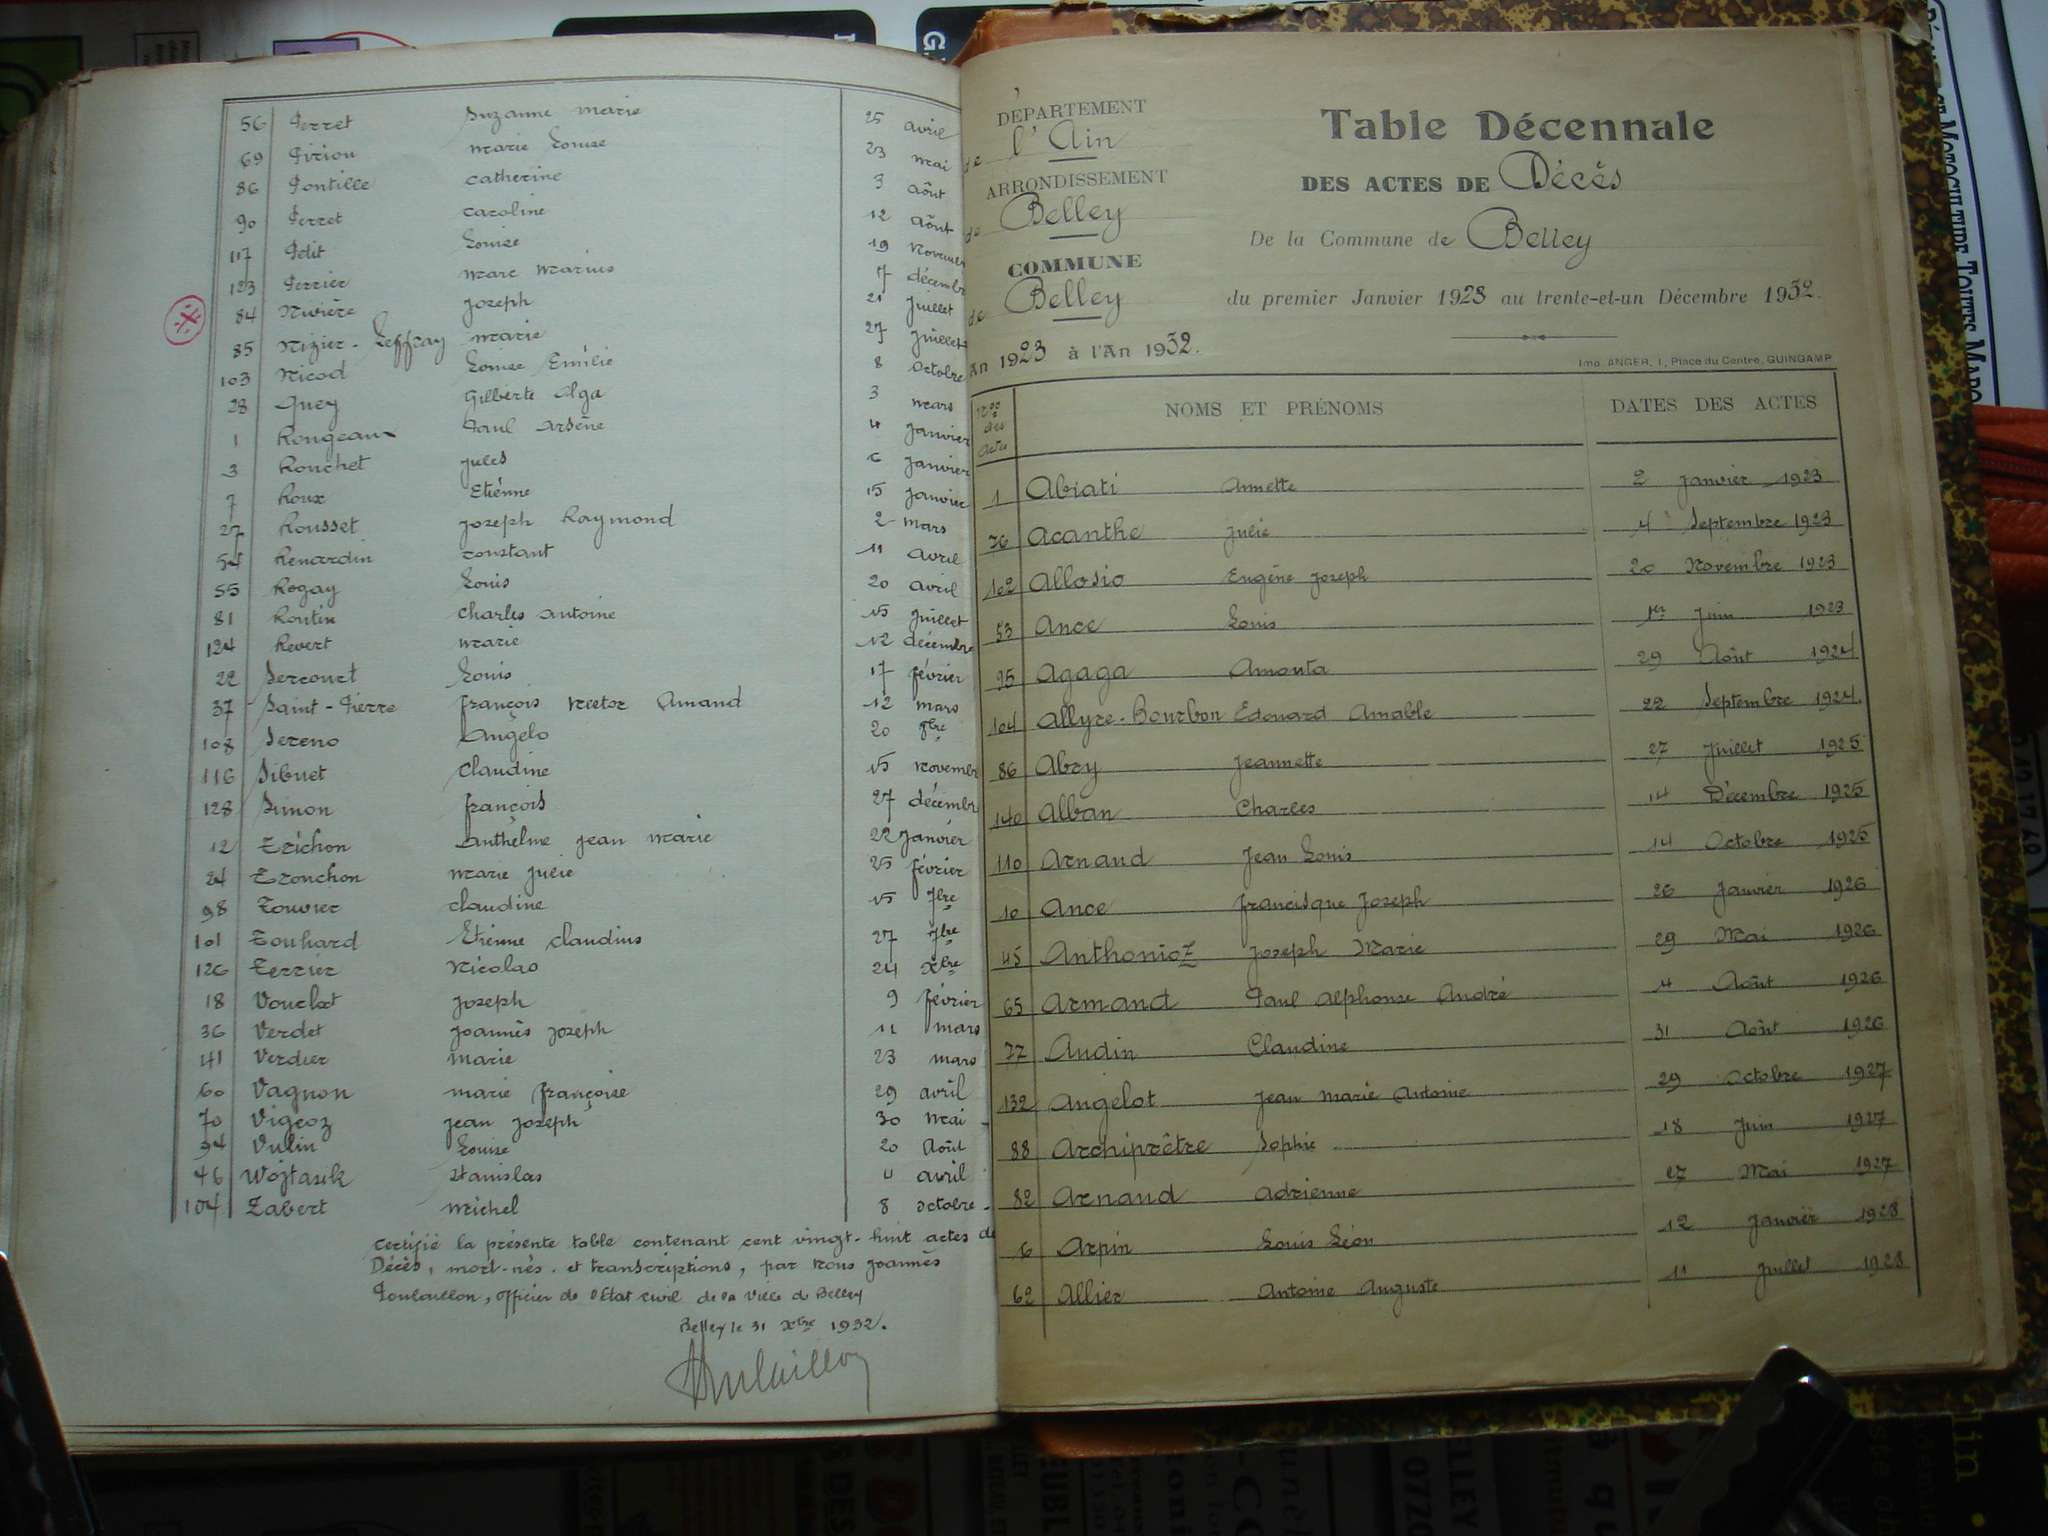 56 Perret Suzanne Marie 25 avril
69 Pirion Marie Louise 23 Mai
86 Pontille Catherine 3 Août
90 Perret Caroline 12 Août
117 Petit Louise 19 Novem
123 Perrier Marc Marius 7 décemb
84 Rivière Joseph 21 juillet
85 Nizier - Leffray Marie 27 juillet
103 Nicod Louise Emilie 8 Octobre
28 Quey Gilberte Olga 3 mars
1 Rongeaux Paul Arsène 4 janvier
3 Rouchet Jules 6 janvier
7 Roux Etienne 15 janvier
27 Rousset Joseph Raymond 2 mars
54 Renardin Constant 11 avril
55 Rogay Louis 20 avril
81 Routin Charles Antoine 15 juillet
124 Revert Marie 12 décembre
22 Sercouet Louis 17 février
37 Saint-Pierre François Rector Amand 12 mars
108 Sereno Angelo 20
116 Sibuet Claudine 15 Novemb
128 Simon François 27 décemb
12 Trichon Anthelme Jean Marie 22 janvier
24 Tronchon Marie Julie 25 février
98 Touvier Claudine 15 7bre
101 Touhard Etienne Claudius 27 7bre
126 Terrier Nicolas 24 Xbre
18 Vouclet Joseph 9 février
36 Verdet Joannès Joseph 11 mars
41 Verdier Marie 23 mars
60 Vagnon Marie Françoise 29 avril
70 Vigroz Jean Joseph 30 Mai
94 Vulin Louise 20 Août
46 Wojtasik Stanislas 4 avril
104 Zabert Michel 8 octobre
Certifié la présente table contenant cent vingt-huit actes de
Décès, mort-nés et transcriptions, par Nous Joannès
Poulaillon, officier de l'Etat civil de la Ville de Belley
Belley le 31 Xbre 1932.
Poulaillon
DÉPARTEMENT
de l'Ain
ARRONDISSEMENT
de Belley
COMMUNE
de Belley
An 1923 à l'An 1932.
Table Décennale
DES ACTES DE Décès
De la Commune de Belley
du premier Janvier 1923 au trente-et-un Décembre 1932.
Imp. ANGER, 1, Place du Centre, GUINGAMP
Nos des Actes NOMS ET PRÉNOMS DATES DES ACTES
1 Abiati Annette 2 Janvier 1923
76 Acanthe Julie 4 Septembre 1923
102 Allosio Eugène Joseph 20 Novembre 1923
53 Ance Louis 1er Juin 1923
95 Agaga Amouta 29 Août 1924
104 Allyre-Bourbon Edouard Amable 22 Septembre 1924
86 Abry Jeannette 27 Juillet 1925
140 Alban Charles 14 Décembre 1925
110 Arnaud Jean Louis 14 Octobre 1925
10 Ance Francisque Joseph 26 Janvier 1926
45 Anthonioz Joseph Marie 29 Mai 1926
65 Armand Paul Alphonse André 4 Août 1926
77 Audin Claudine 31 Août 1926
132 Angelot Jean Marie Antoine 29 Octobre 1927
88 Archiprêtre Sophie 18 Juin 1927
82 Arnaud Adrienne 27 Mai 1927
6 Arpin Louis Léon 12 Janvier 1928
62 Allier Antoine Auguste 11 Juillet 1928